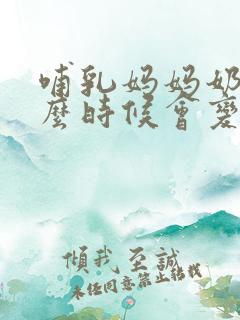 哺乳妈妈奶
麼時候會變
傾我至誠
未任同意禁止轉載